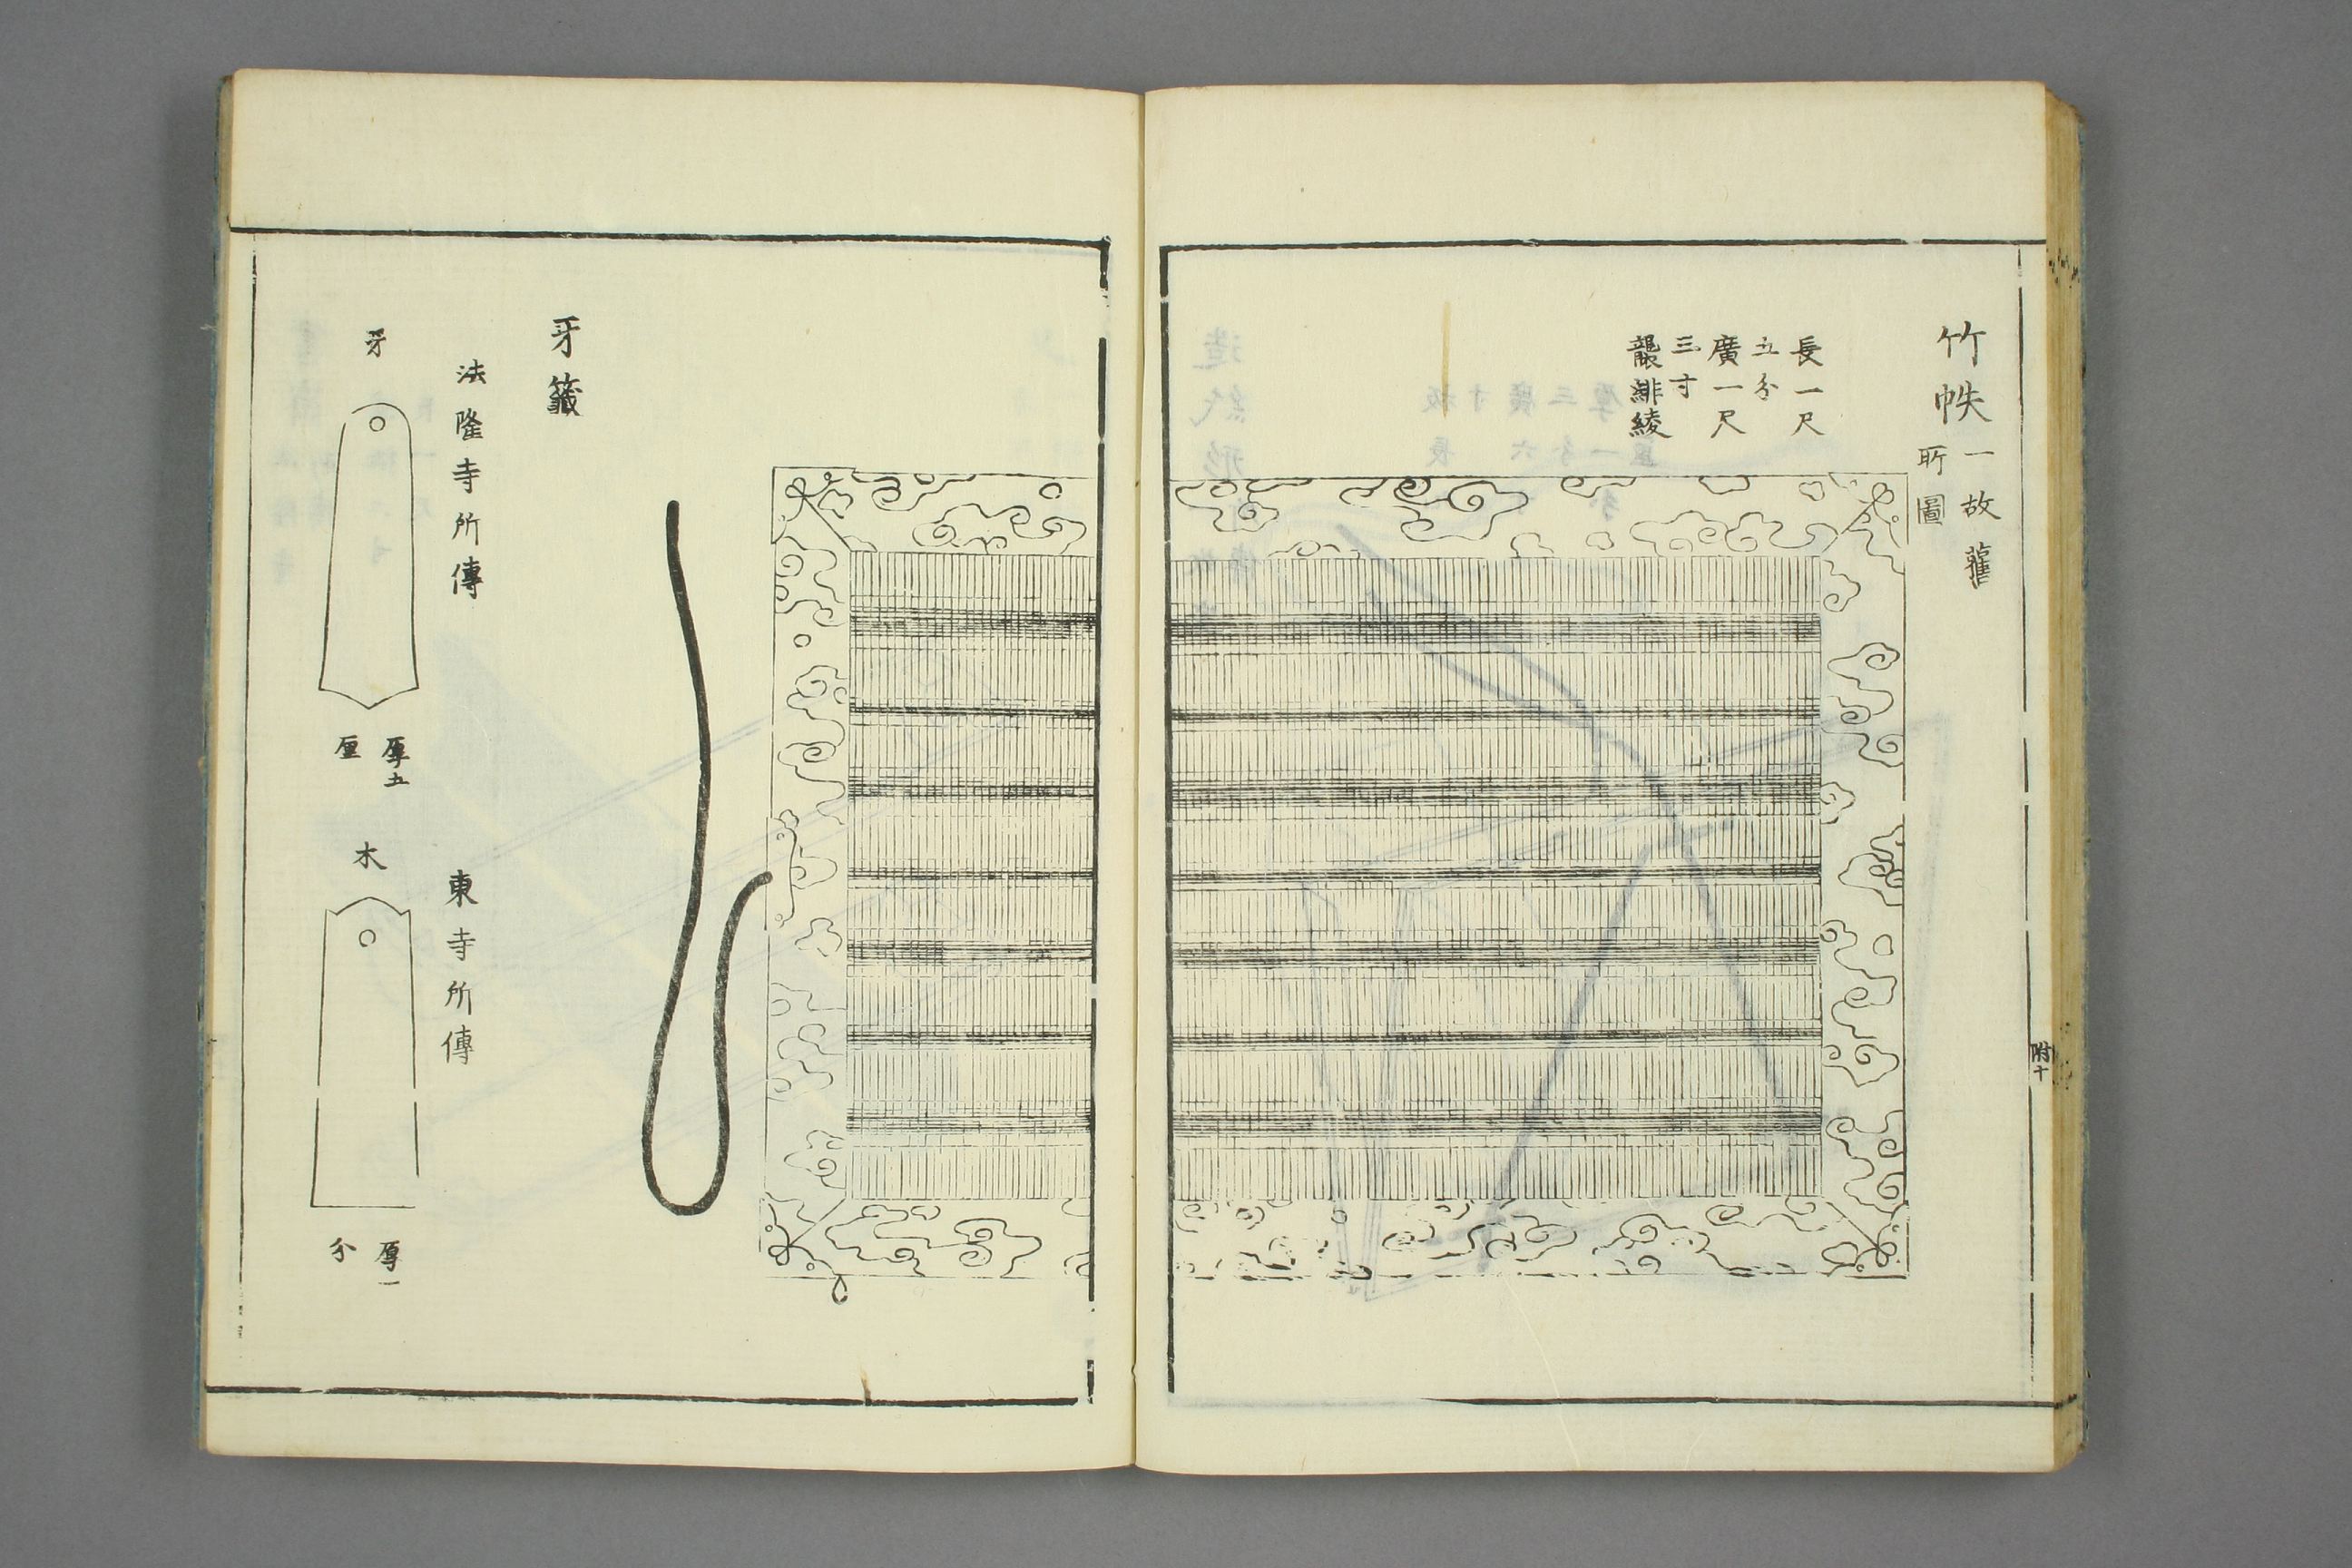 竹帙
一故舊
所圖
長一尺
五分
廣一尺
三寸
緋綾
附十
牙籤
法隆寺所傳
牙
厚五
厘
東寺所傳
木
厚一
分